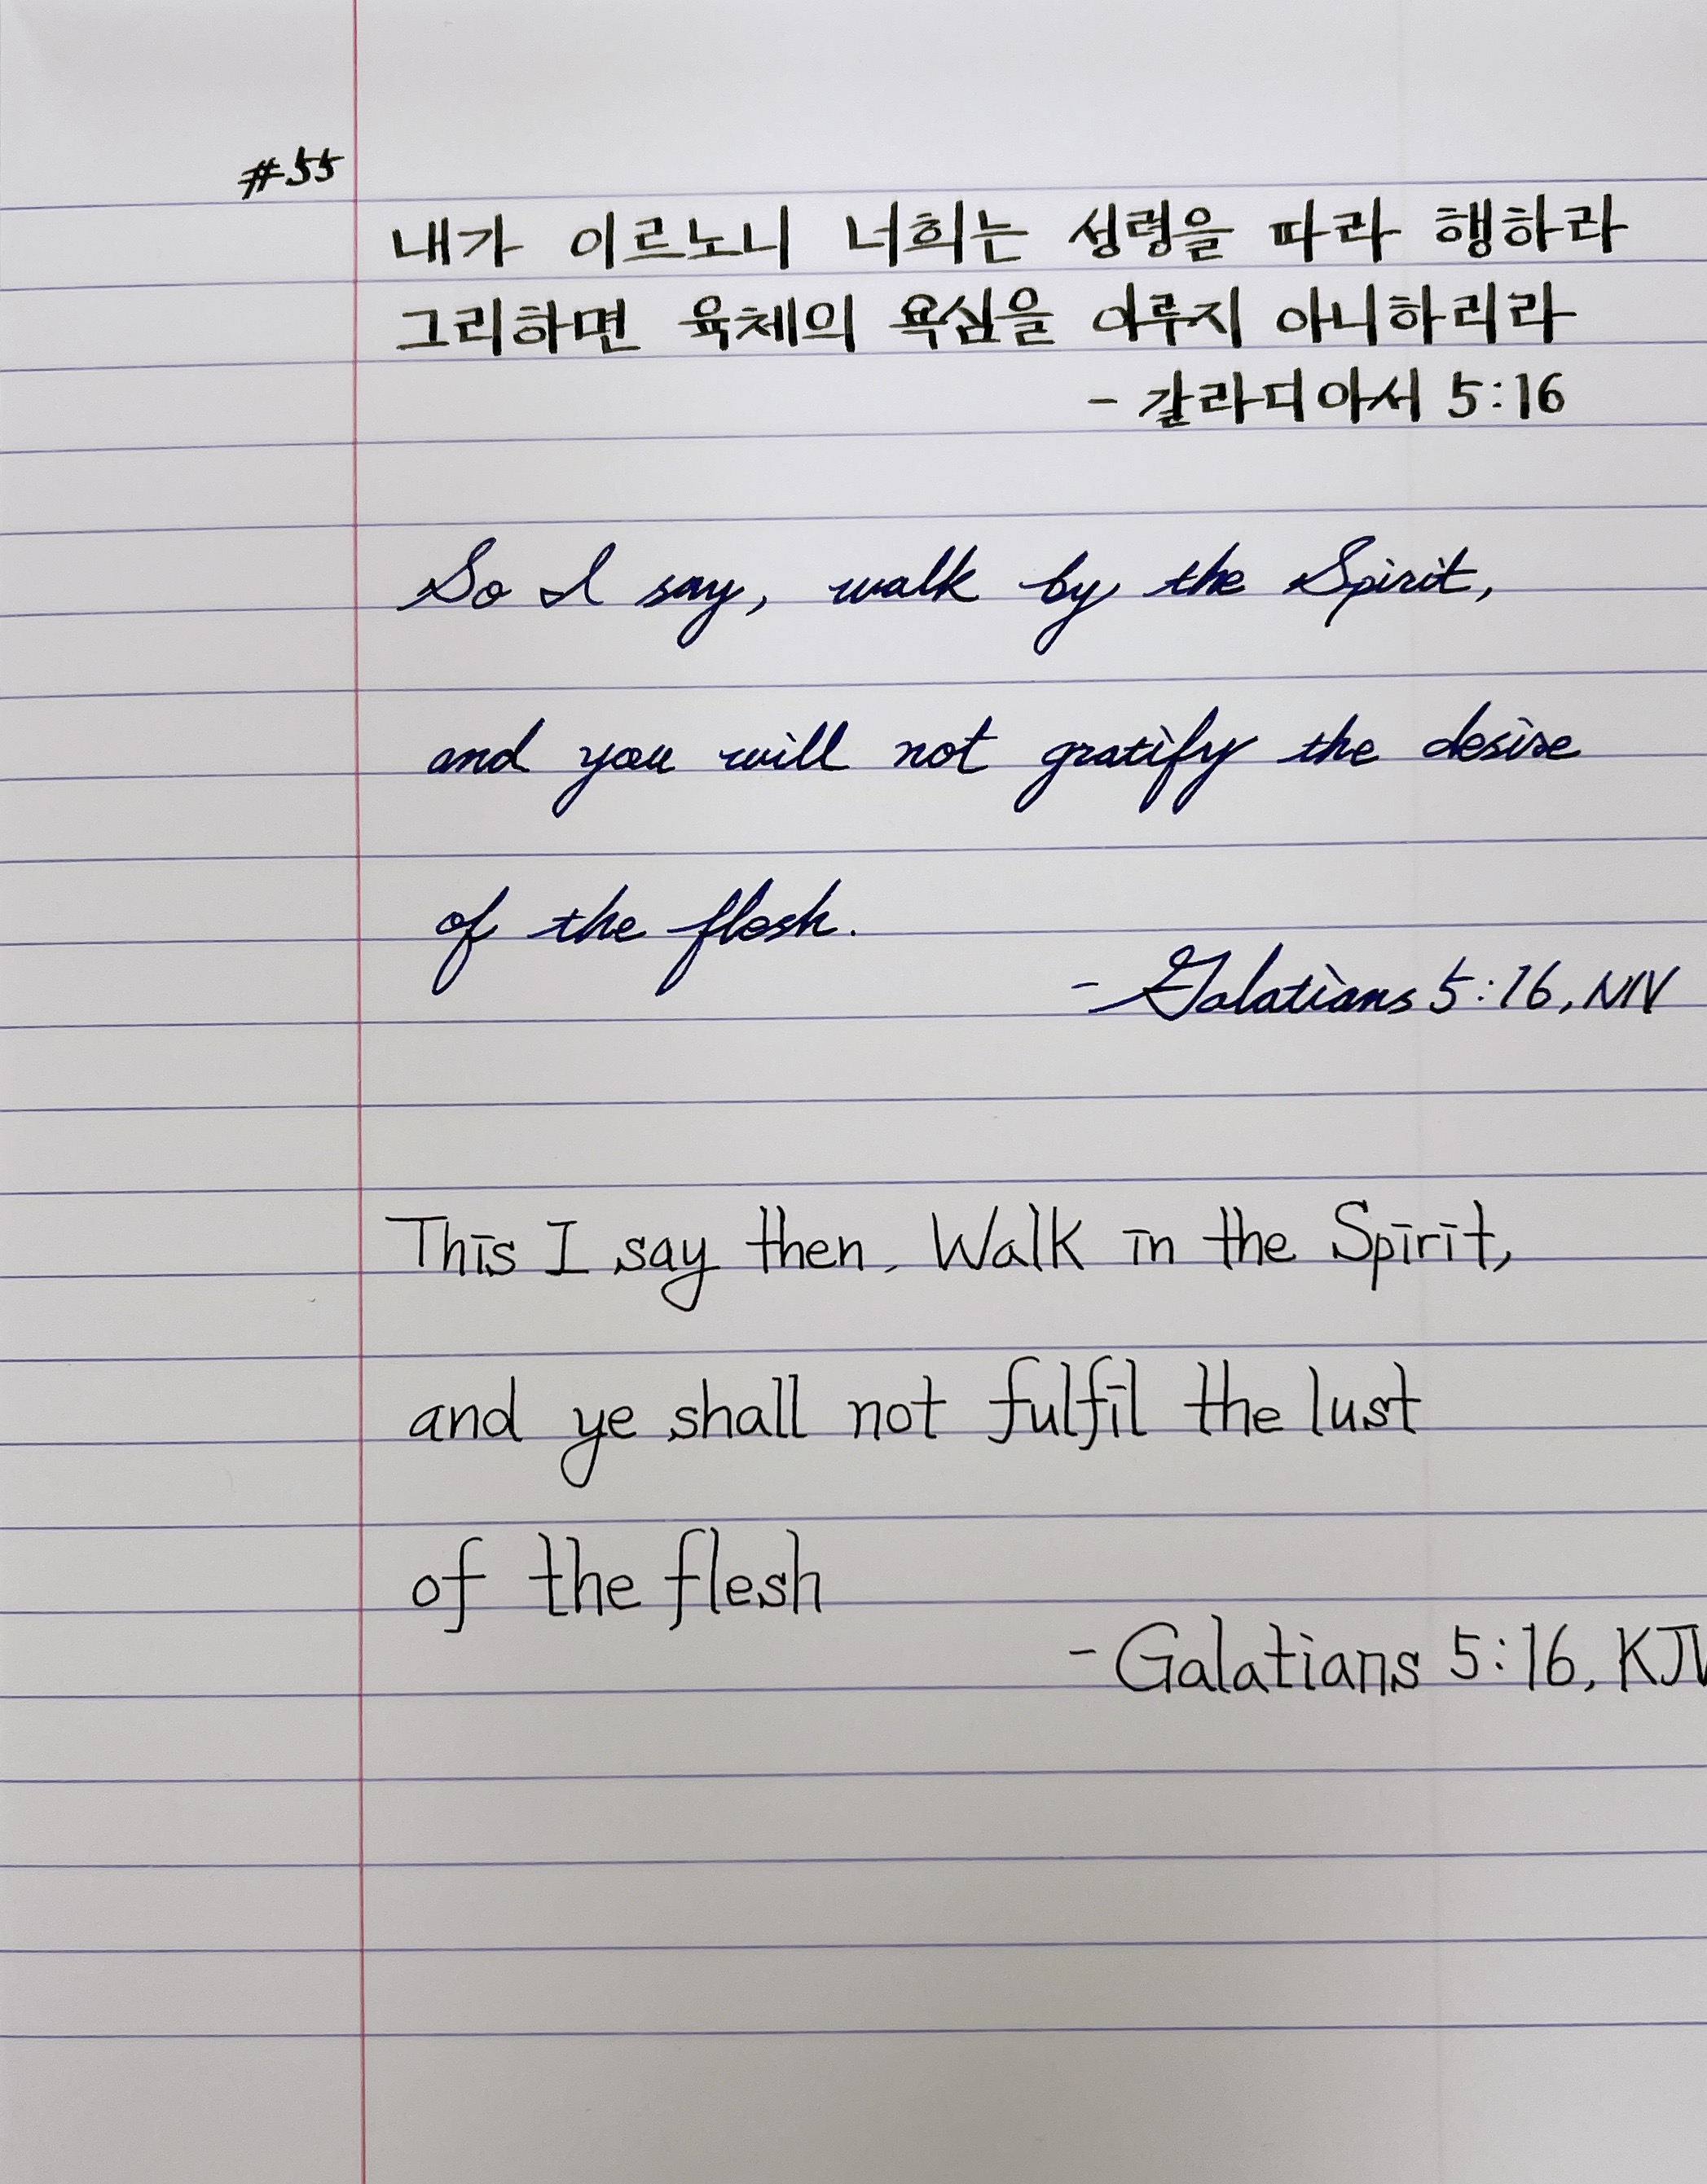 #55
내가 이르노니 너희는 성령을 따라 행하라
그리하면 육체의 욕심을 이루지 아니하리라
- 갈라디아서 5:16
So I say, walk by the Spirit,
and you will not gratify the desire
of the flesh.
- Galatians 5:16, NIV
This I say then, Walk in the Spirit,
and ye shall not fulfil the lust
of the flesh
- Galatians 5:16, KJV